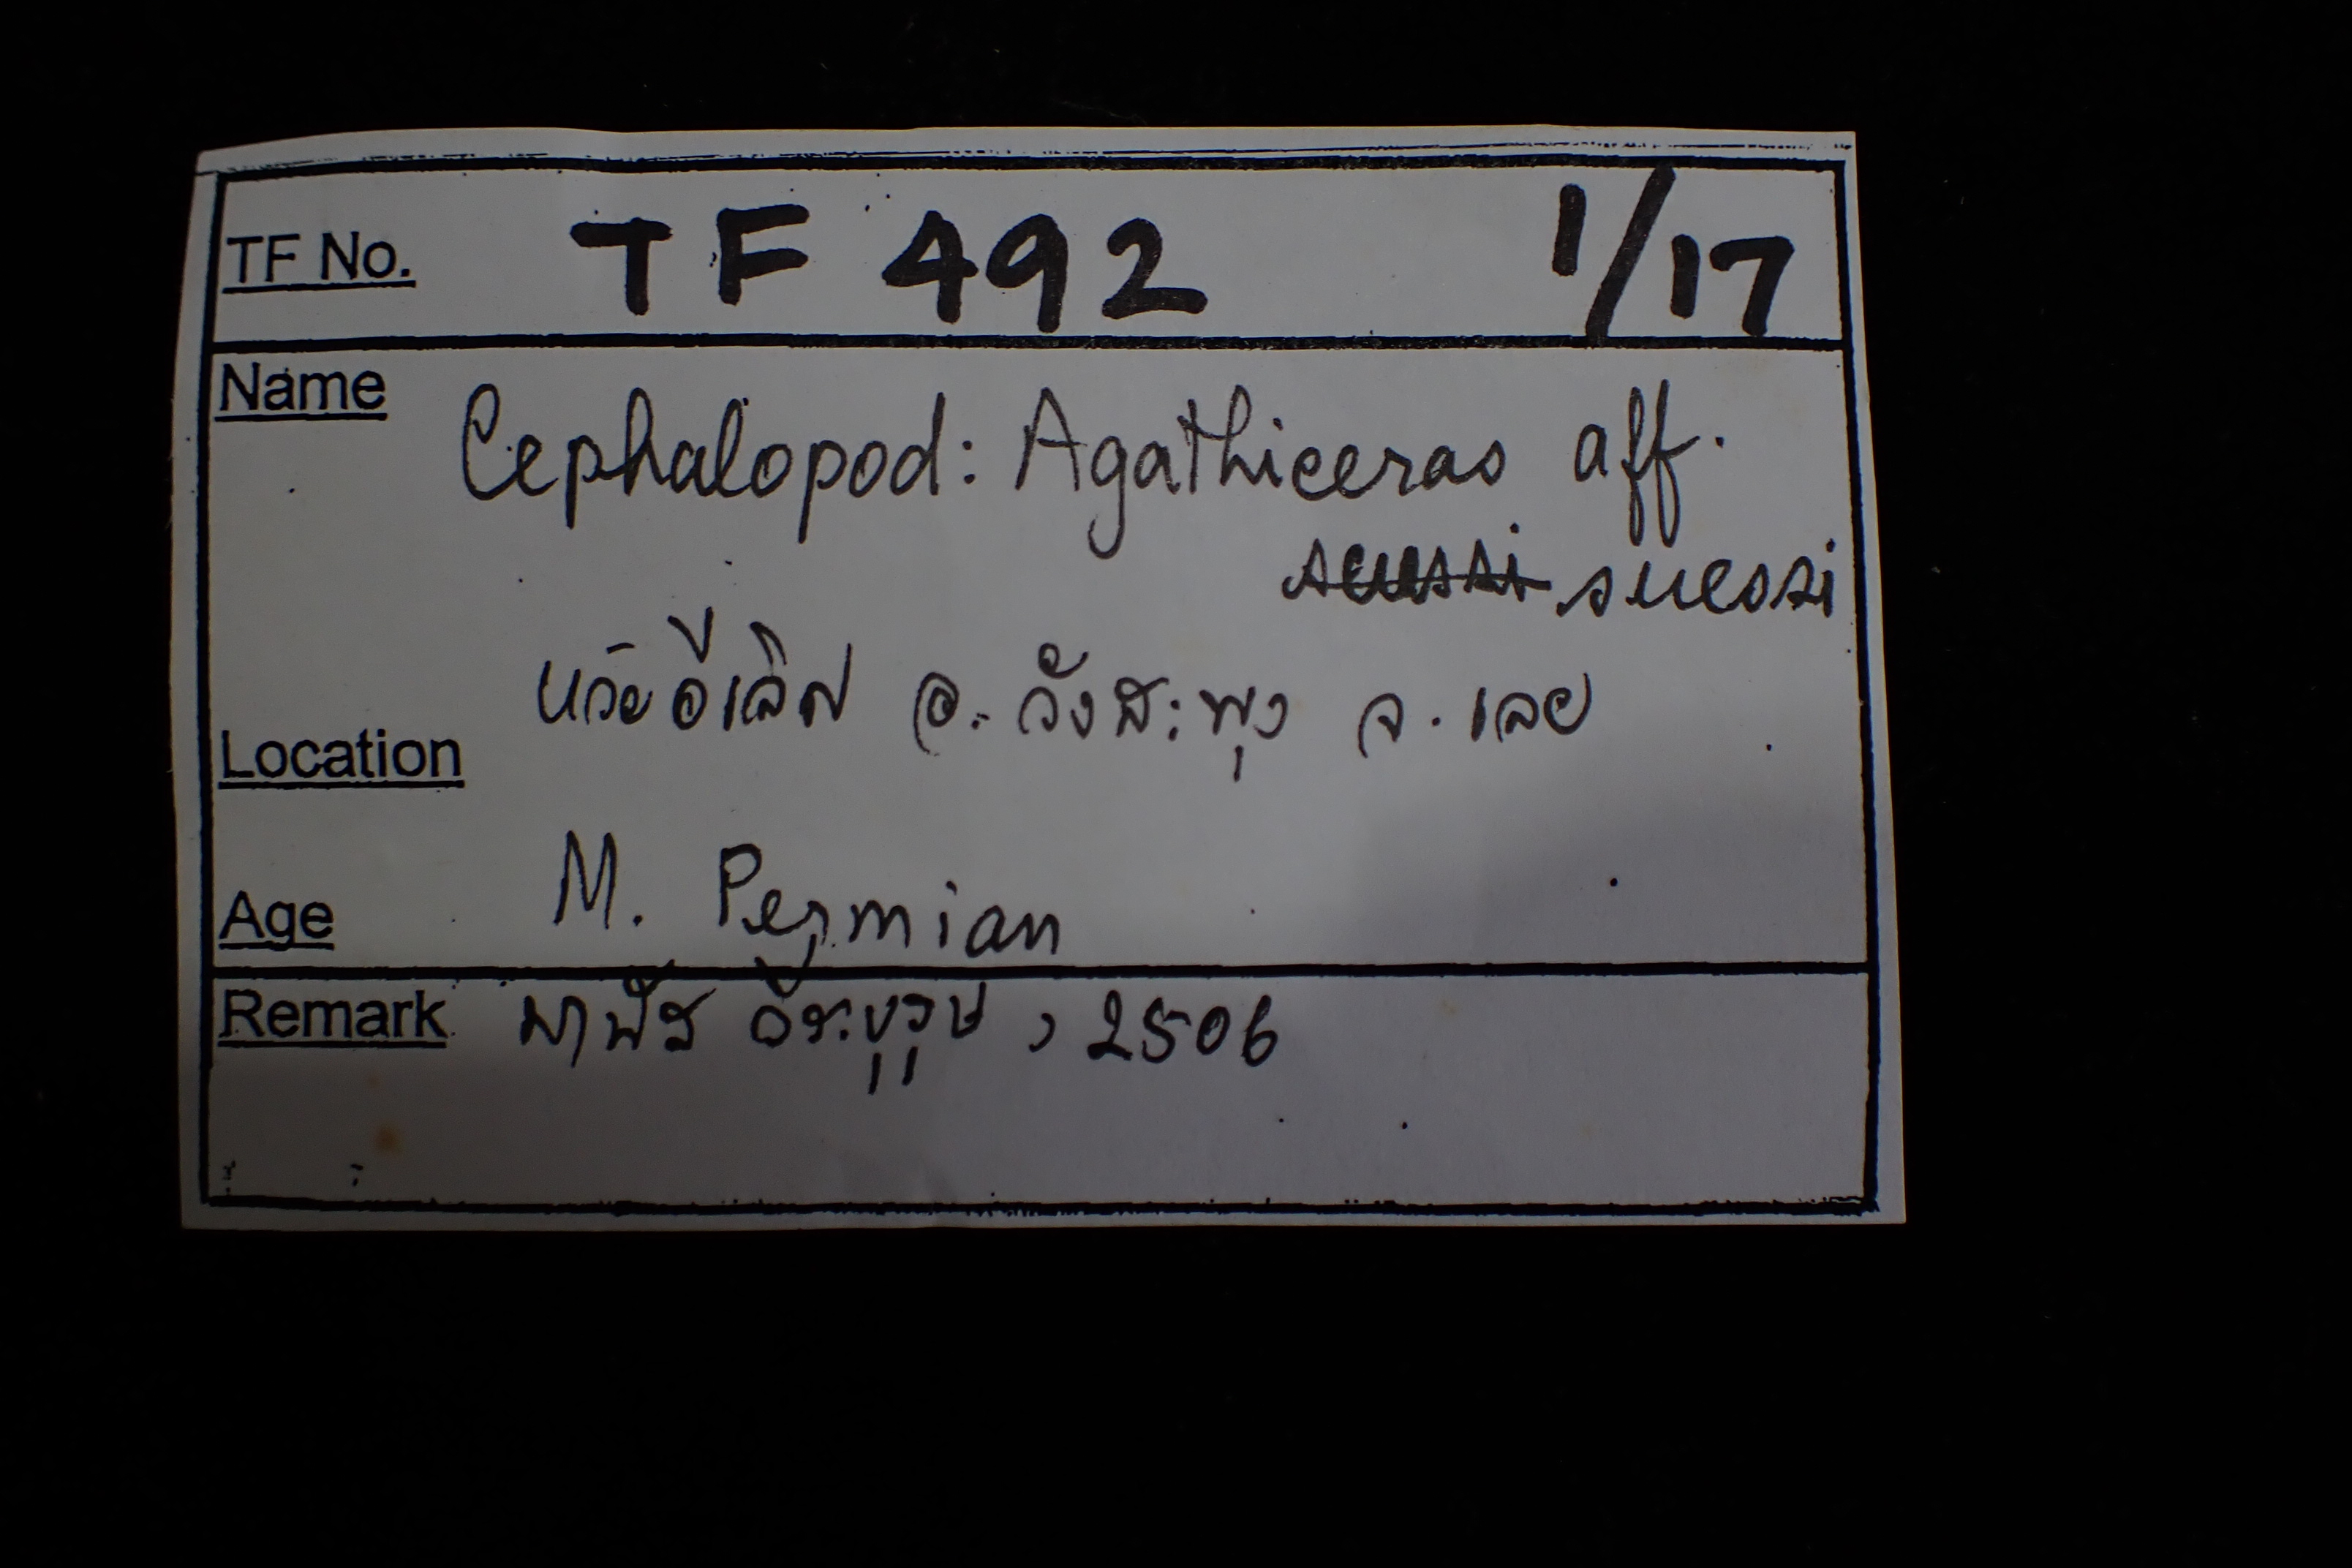 TF No. TF 492 1/17
Name Cephalopod: Agathiceras aff.
suessi
Location ห้วยอีเลิศ อ. วังสะพุง จ. เลย
Age M. Permian
Remark วีระบุรุษ , 2506